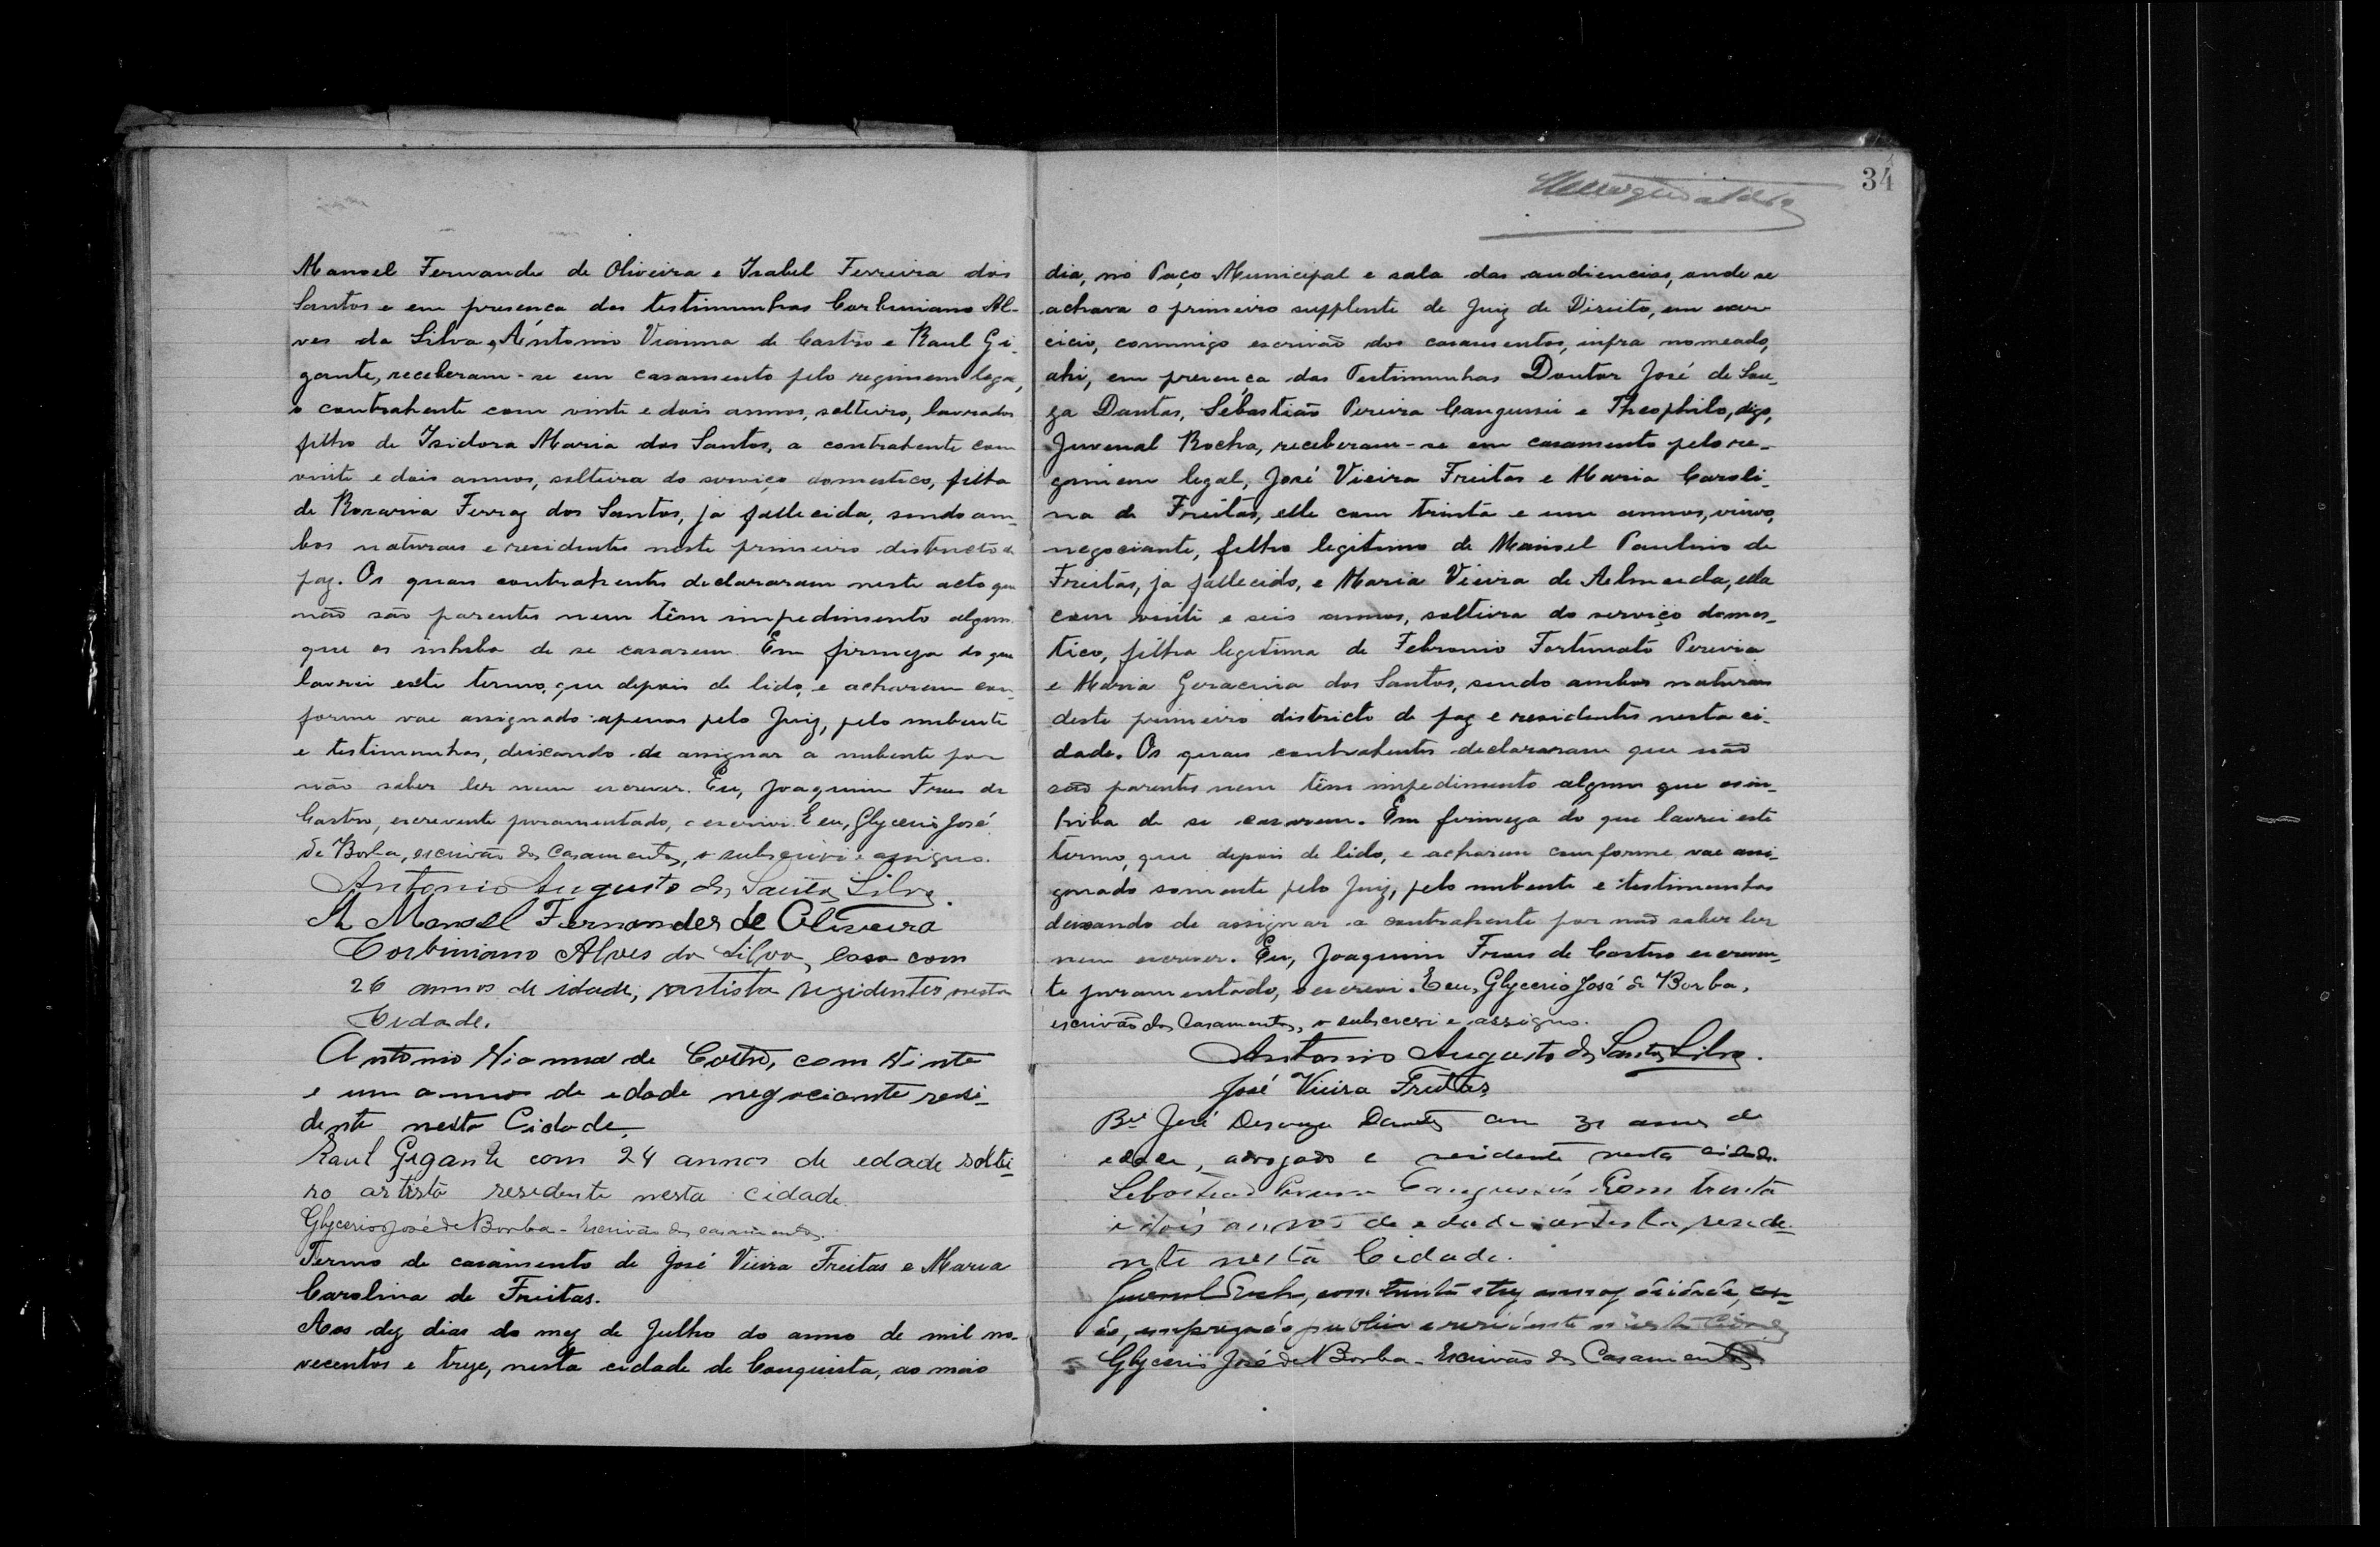 Manoel Fernandes de Oliveira e Isabel Ferreira dos
Santos e em presença das testimunhas Corbiniano Al-
ves da Silva, Antonio Vianna de Castro e Raul Gi-
gante, receberam-se em casamento pelo regimem legal,
o contrahente com vinte e dois annos, solteiro, lavrador
filho de Isidora Maria dos Santos, a contrahente com
vinte e dois annos, solteira do serviço domestico, filha
de Rosaria Ferraz dos Santos, ja fallecida, sendo am-
bos naturaes e residentes neste primeiro districto de
paz. Os quaes contrahentes declararam neste acto que
não são parentes nem têm impedimento algum
que os inhiba de se casarem. Em firmeza do que
lavrei este termo, que depois de lido, e acharem con-
forme vae assignado apenas pelo Juiz, pelo nubente
e testimunhas, deixando de assignar a nubente por
não saber ler nem escrever. Eu, Joaquim Froes de
Castro, escrevente juramentado, o escrevi. E eu, Glycerio José
de Borba, escrivão dos Casamentos, o subscrevi e assigno.
Antonio Augusto dos Santos Silva.
Manoel Fernandes de Oliveira
Corbiniano Alves da Silva, com
26 annos de idade, artista rezidentes nesta
Cidade.
Antonio Vianna de Castro, com vinte
e um annos de edade negociante resi-
dente nesta Cidade.
Raul Gigante com 24 annos de edade soltei-
ro artista residente nesta cidade.
Glycerio José de Borba - Escrivão dos casamentos.
Termo de casamento de José Vieira Freitas e Maria
Carolina de Freitas.
Aos dez dias do mez de Julho do anno de mil no-
vecentos e treze, nesta cidade de Conquista, ao meio
34
dia, no Paço Municipal e sala das audiencias, onde se
achava o primeiro supplente de Juiz de Direito, em exer-
cicio, commigo escrivão dos casamentos, infra nomeado,
ahi, em presença das Testimunhas Doutor José de Sou-
za Dantas, Sebastião Pereira Cangussú e Theophilo, digo,
Juvenal Rocha, receberam-se em casamento pelo re-
gimem legal, José Vieira Freitas e Maria Caroli-
na de Freitas, elle com trinta e um annos, viuvo,
negociante, filho legitimo de Manoel Paulino de
Freitas, ja fallecido, e Maria Vieira de Almeida, ella
com vinte e seis annos, solteira do serviço domes-
tico, filha legitima de Febronio Fortunato Pereira
e Maria Geracina dos Santos, sendo ambos naturaes
deste primeiro districto de paz e residentes nesta ci-
dade. Os quaes contrahentes declararam que não
são parentes nem têm impedimento algum que os in-
hiba de se casarem. Em firmeza do que lavrei este
termo, que depois de lido, e acharem conforme vae assi-
gnado somente pelo Juiz, pelo nubente e testimunhas
deixando de assignar a contrahente por não saber ler
nem escrever. Eu, Joaquim Froes de Castro escreven-
te juramentado, o escrevi. E eu, Glycerio José de Borba,
escrivão dos Casamentos, o subscrevi e assigno.
Antonio Augusto dos Santos Silva.
José Vieira Freitas
Bel José Desouza Dantas com 31 annos de
edade, advogado e residente nesta cidade.
Sebastião Pereira Cangussú Com trenta
e dois annos de edade artista, reside-
nte nesta Cidade.
Juvenal Rocha, com trinta e trez annos de idade, ca-
do, empregado publico e residente nesta Cidade
Glycerio José de Borba - Escrivão dos Casamentos